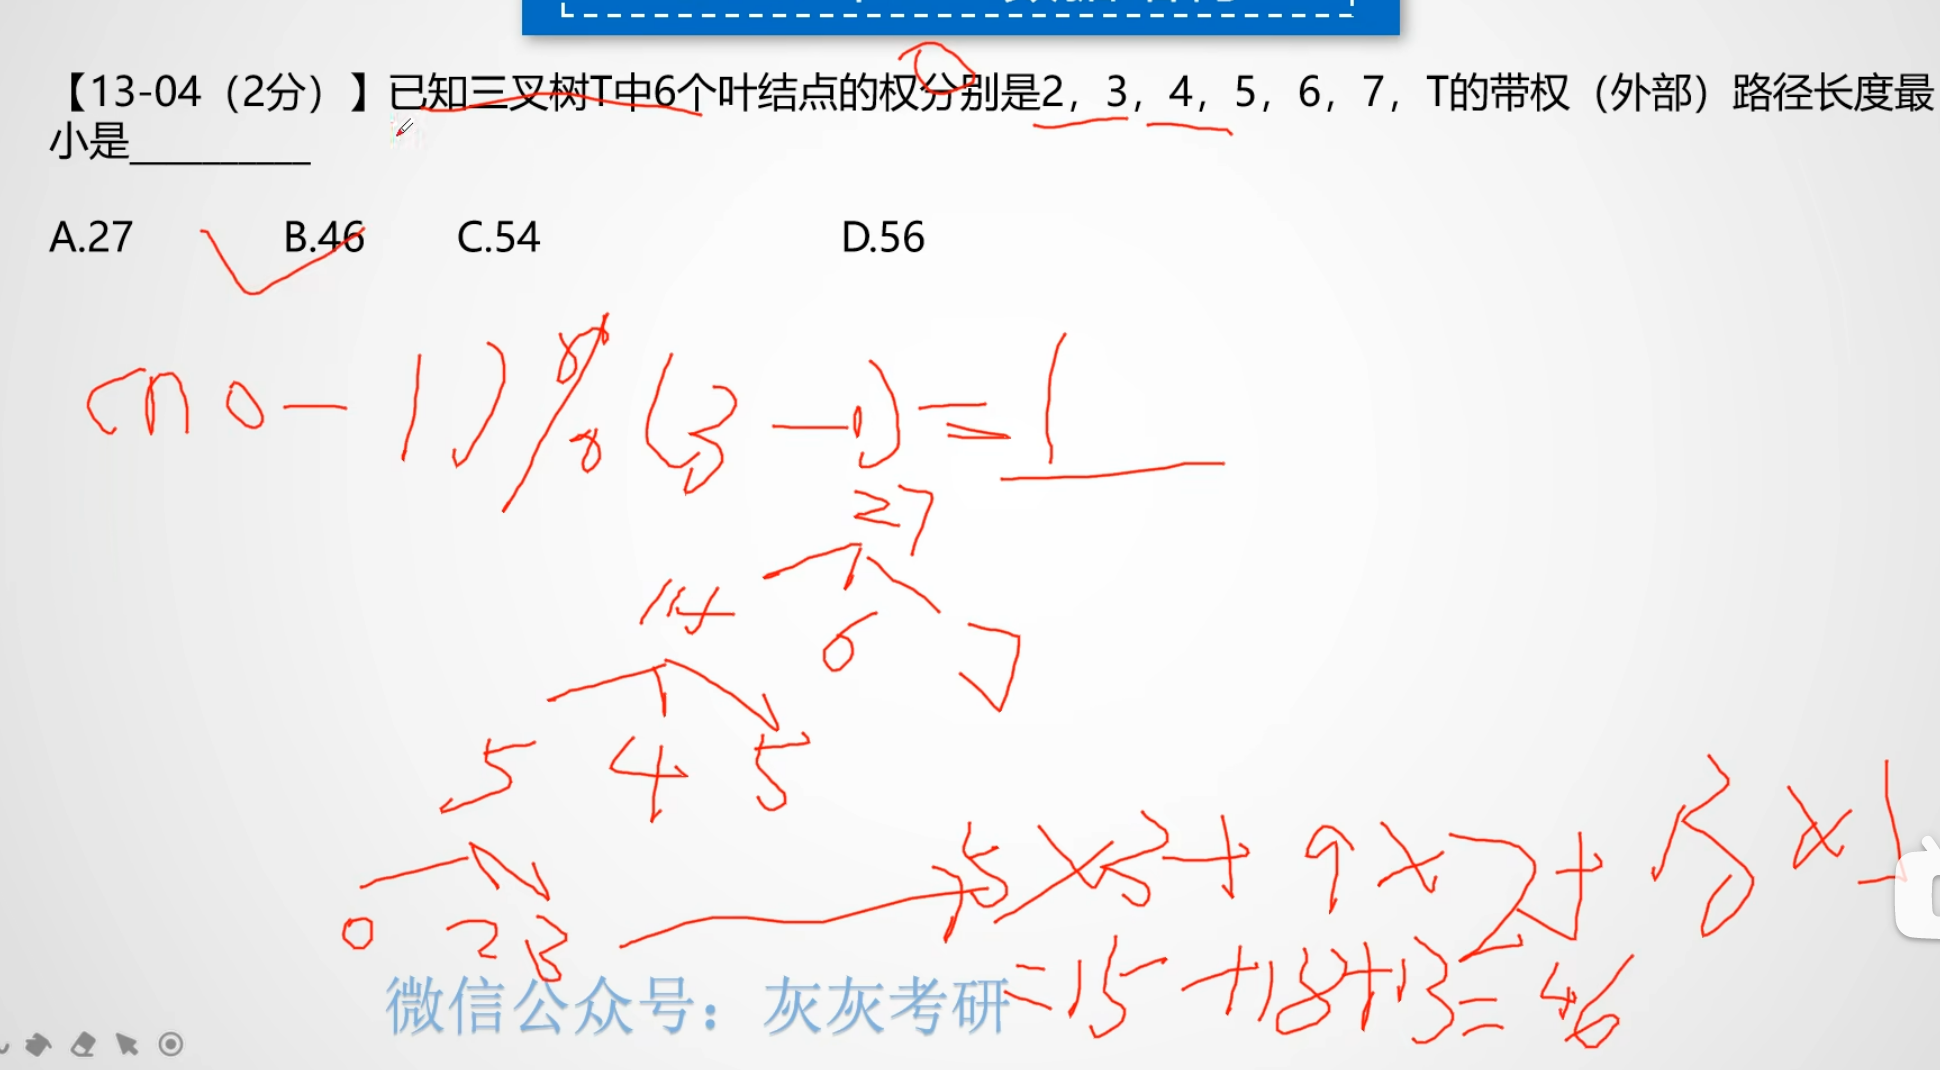 【13-04（2分）】已知三叉树T中6个叶结点的权分别是2，3，4，5，6，7，T的带权（外部）路径长度最
小是_________
A.27 B.46 C.54 D.56
(n0-1)%(3-1)=1
27
14 6 7
5 4 5
0 2 3
5×3+9×2+13×1
=15+18+13=46
微信公众号：灰灰考研